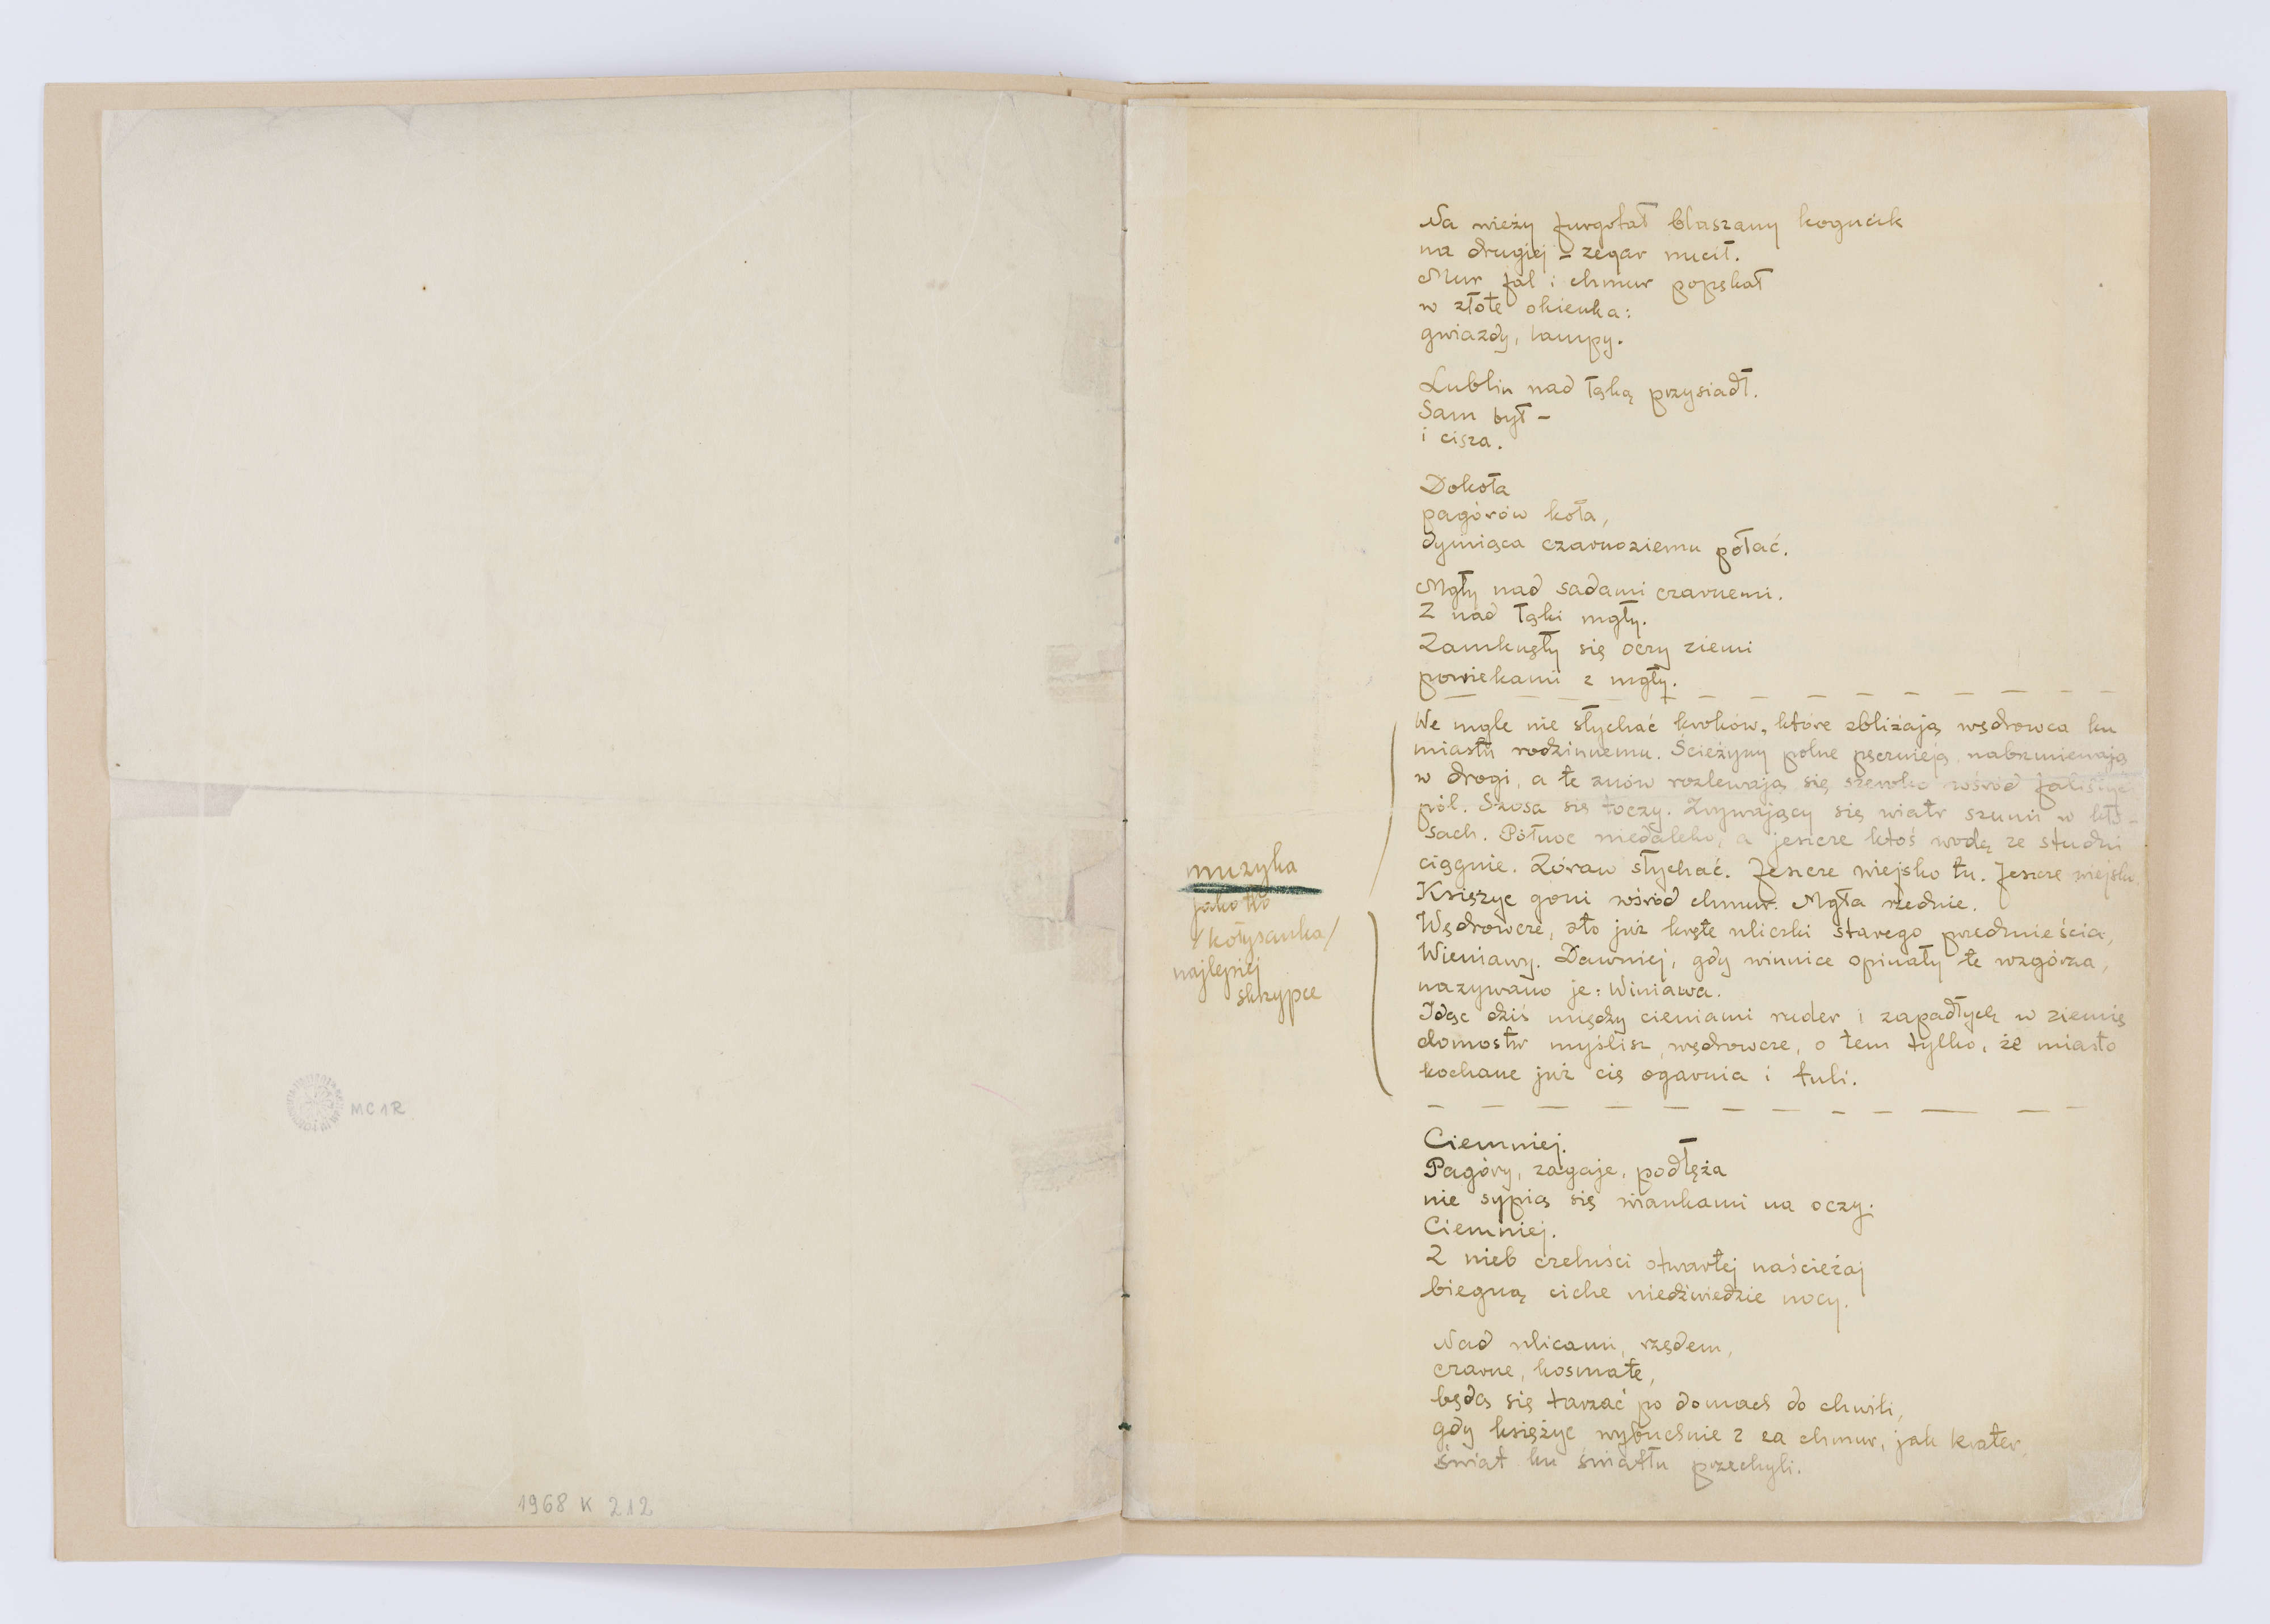 MC1R
1968 K 212
Na wieży furgotał blaszany kogucik
na drugiej – zegar nucił.
Mur fal i chmur popękał
w złote okienka:
gwiazdy, lampy.
Lublin nad łąką przysiadł.
Sam był –
i cisza.
Dokoła
pagórów koła,
dymiąca czarnoziemu połać.
Mgły nad sadami czarnemi.
Znad łąki mgły.
Zamknęły się oczy ziemi
powiekami z mgły.
We mgle nie słychać kroków, które zbliżają wędrowca ku
miastu rodzinnemu. Ścieżyny polne pęcznieją, nabrzmiewają
w drogi, a te znów rozlewają się szeroko wśród falistych
pól. Szosa się toczy. Zrywający się wiatr szumi w kło-
sach. Północ niedaleko, a jeszcze ktoś wodę ze studni
ciągnie. Żóraw słychać. Jeszcze wiejsko tu. Jeszcze wiejsko.
Księżyc goni wśród chmur. Mgła rzednie.
Wędrowcze, oto już kręte uliczki starego przedmieścia,
Wieniawy. Dawniej, gdy winnice opinały te wzgórza,
nazywano je: Winiawa.
Idąc dziś między cieniami ruder i zapadłych w ziemię
domostw myślisz, wędrowcze, o tem tylko, że miasto
kochane już cię ogarnia i tuli.
muzyka
jako tło
/kołysanka/
najlepiej
skrzypce
Ciemniej.
Pagóry, zagaje, podłęża
nie sypią się wiankami na oczy.
Ciemniej.
Z nieb czeluści otwartej naścieżaj
biegną ciche niedźwiedzie nocy.
Nad ulicami, rzędem,
czarne, kosmate,
będą się tarzać po domach do chwili,
gdy księżyc wybuchnie z za chmur, jak krater,
świat ku światłu przechyli.